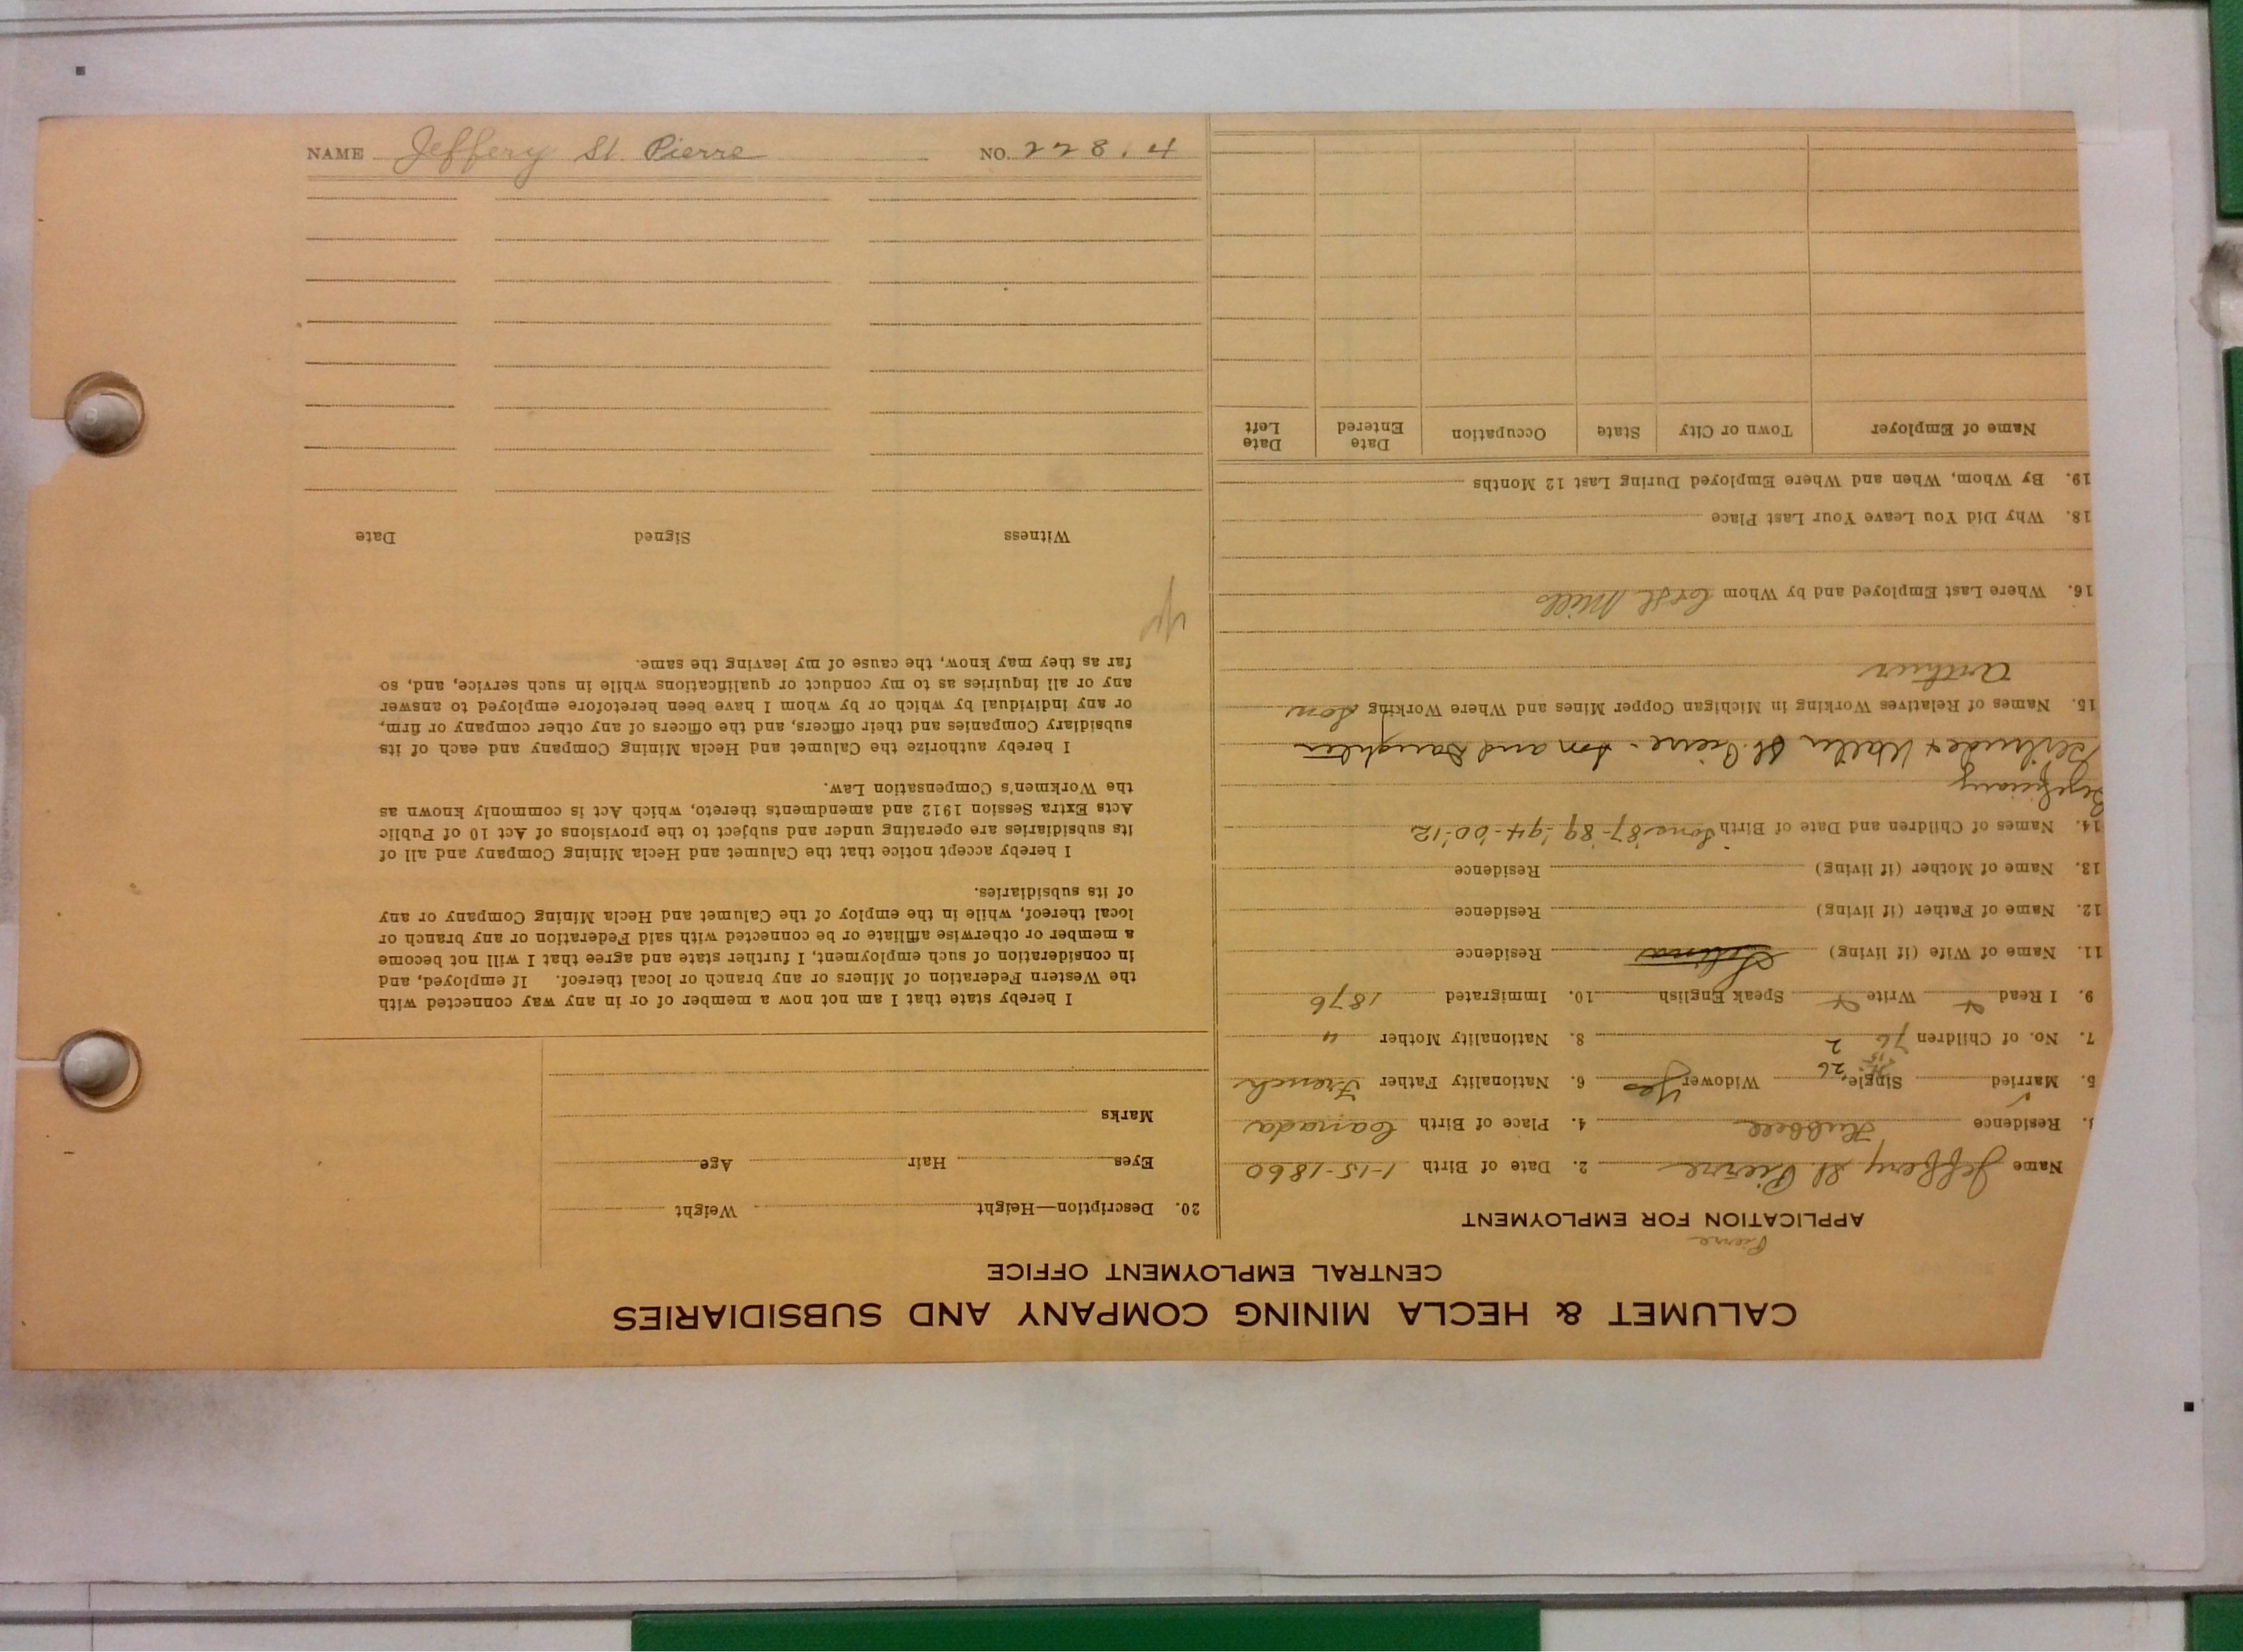 CALUMET & HECLA MINING COMPANY AND SUBSIDIARIES
CENTRAL EMPLOYMENT OFFICE
Pierre
APPLICATION FOR EMPLOYMENT
Name Jeffery St. Pierre 2. Date of Birth 1-15-1860
3. Residence Hubbell 4. Place of Birth Canada
5. Married Single Widower Yes 6. Nationality Father French
7. No. of Children 8. Nationality Mother "
9. I Read Write Speak English 10. Immigrated 1876
11. Name of Wife (if living) Residence
12. Name of Father (if living) Residence
13. Name of Mother (if living) Residence
14. Names of Children and Date of Birth Sons '87-'89-'94-'00-'12
Beneficiary
Walter St. Pierre - Son and Daughter
15. Names of Relatives Working in Michigan Copper Mines and Where Working Son
Arthur
16. Where Last Employed and by Whom C&H Mills
18. Why Did You Leave Your Last Place
19. By Whom, When and Where Employed During Last 12 Months
Name of Employer Town or City State Occupation Date Entered Date Left
20. Description—Height Weight
Eyes Hair Age
Marks
I hereby state that I am not now a member of or in any way connected with
the Western Federation of Miners or any branch or local thereof. If employed, and
in consideration of such employment, I further state and agree that I will not become
a member or otherwise affiliate or be connected with said Federation or any branch or
local thereof, while in the employ of the Calumet and Hecla Mining Company or any
of its subsidiaries.
I hereby accept notice that the Calumet and Hecla Mining Company and all of
its subsidiaries are operating under and subject to the provisions of Act 10 of Public
Acts Extra Session 1912 and amendments thereto, which Act is commonly known as
the Workmen's Compensation Law.
I hereby authorize the Calumet and Hecla Mining Company and each of its
subsidiary Companies and their officers, and the officers of any other company or firm,
or any individual by which or by whom I have been heretofore employed to answer
any or all inquiries as to my conduct or qualifications while in such service, and, so
far as they may know, the cause of my leaving the same.
Witness Signed Date
NAME Jeffery St. Pierre NO. 228.4